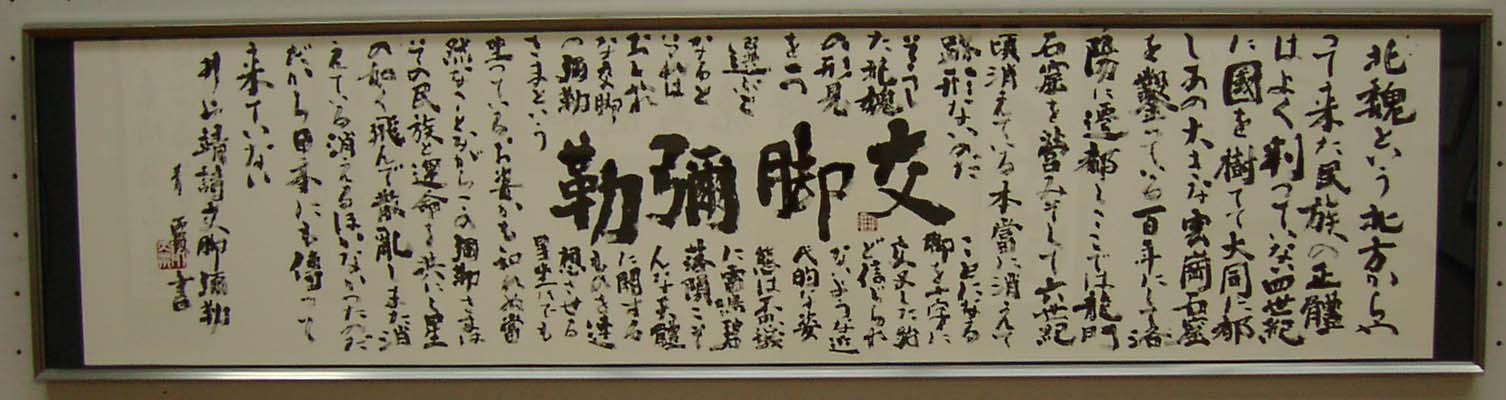 北魏という北方からや
って来た民族の正體
はよく判っていな四世紀
に國を樹てて大同に都
しあの大きな雲岡石窟
を鑿っている百年にして洛
陽に遷都しここでは龍門
石窟を營みそして六世紀
頃消えている本當に消えて
跡形ないのだ
そうし
た北魏
の形見
を一つ
選ぶと
なると
それは
な交脚
の彌勒
さまという
交脚彌勒
ことになる
脚を十字に
交叉した殆
ど信じられ
ないような近
代的な姿
態は不思議
に
んな天體
に關する
ものを連
想させる
星座でも
坐っているお姿かも知れぬ當
然なことながらこの彌勒さまは
その民族と運命を共にし星
の如く飛んで散亂しまた消
えている消えるほかなかったのだ
だから日本にも傳って
来ていない
井上靖詩交脚彌勒
書